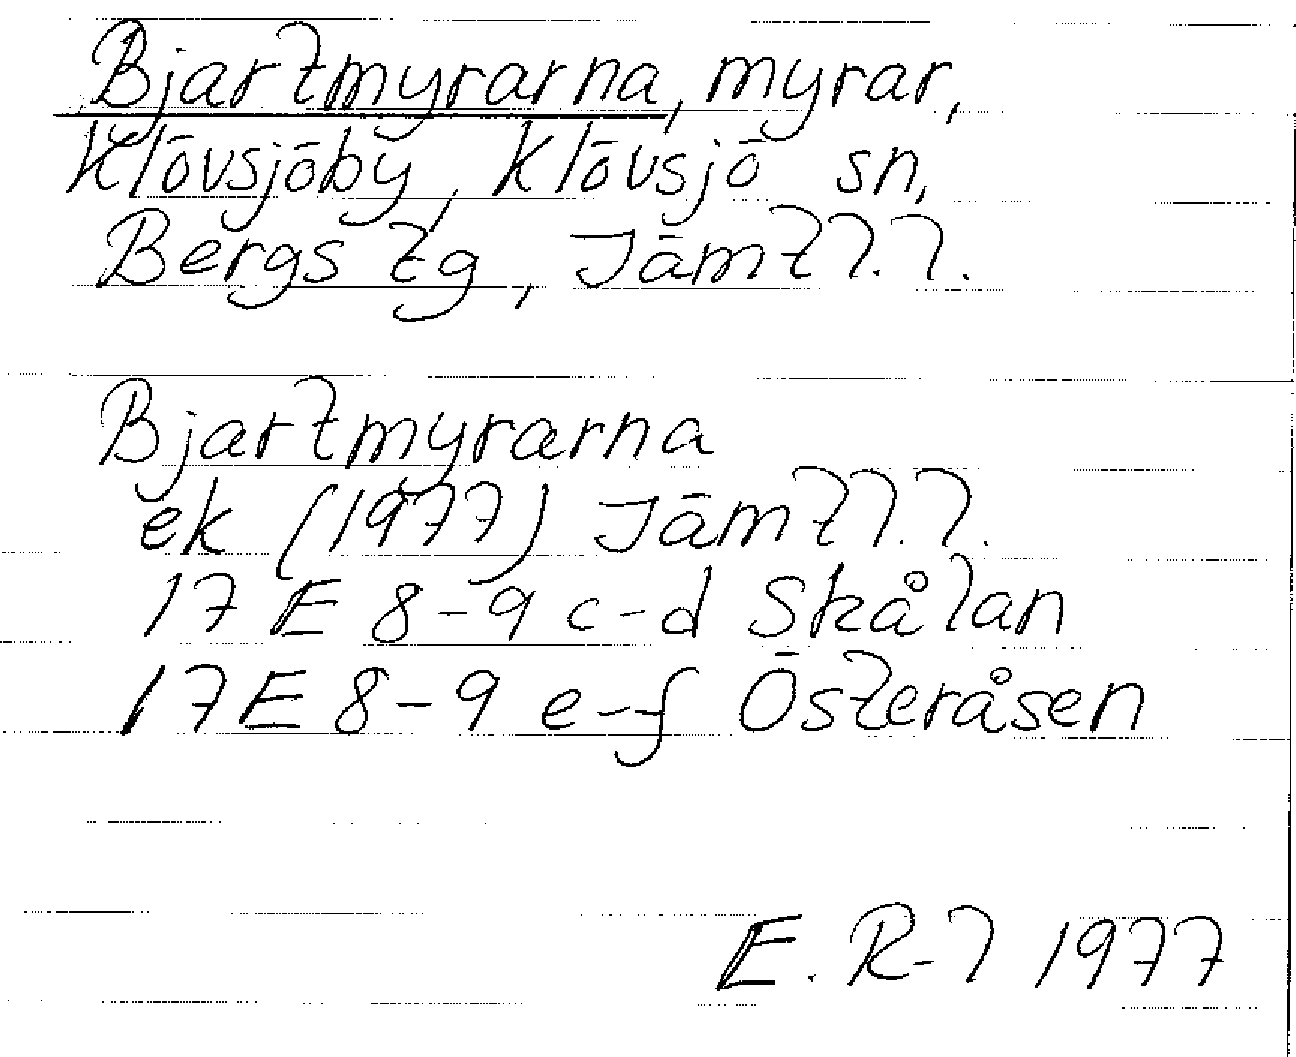 Bjartmyrarna, myrar,
Klövsjöby, Klövsjö sn,
Bergs tg, Jämtl.l.
Bjartmyrarna
ek (1977) Jämtl.l.
17 E 8-9 c-d Skålan
17 E 8-9 e-f Österåsen
E. R-l 1977